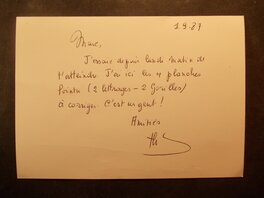 1.9.87
Marc,
J'essaie depuis lundi matin de
t'atteindre. J'ai ici les 4 planches
Pointu (2 lettrages - 2 Gorilles)
à corriger. C'est urgent !
Amitiés